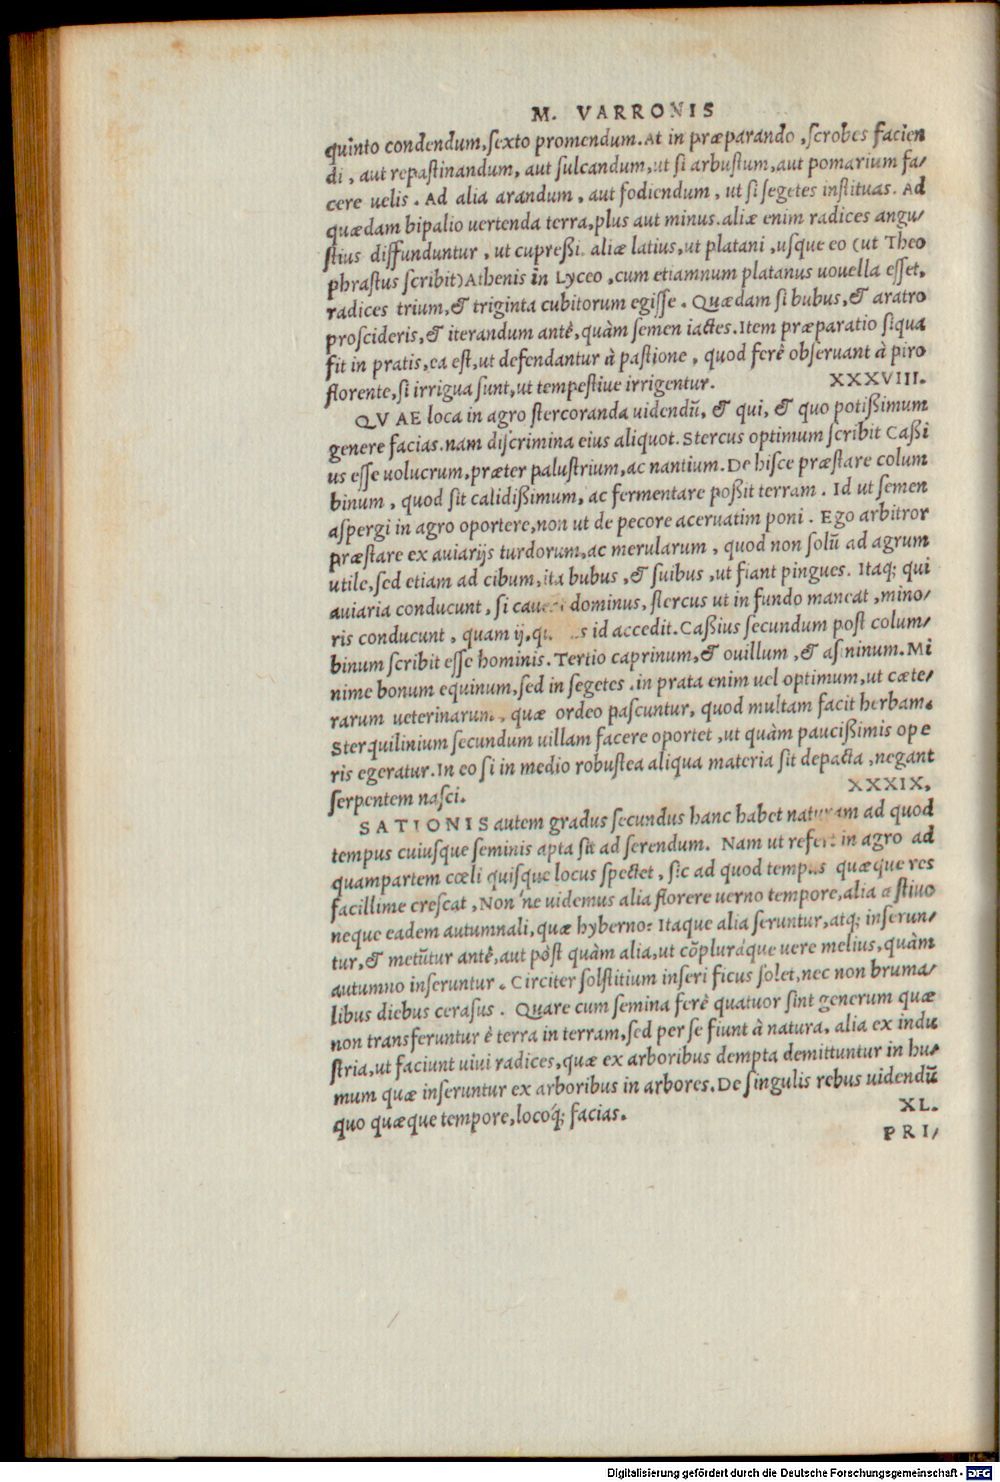 M. VARRONIS
quinto condendum, sexto promendum. At in præparando, scrobes facien
di, aut repastinandum, aut sulcandum, ut si arbustum, aut pomarium fa/
cere uelis. Ad alia arandum, aut fodiendum, ut si segetes instituas. Ad
quædam bipalio uertenda terra, plus aut minus. aliæ enim radices angu/
stius diffunduntur, ut cupreßi. aliæ latius, ut platani, usque eo (ut Theo
phrastus scribit) Athenis in Lyceo, cum etiamnum platanus uouella esset,
radices trium, & triginta cubitorum egisse. Quædam si bubus, & aratro
proscideris, & iterandum antè, quàm semen iactes. Item præparatio siqua
fit in pratis, ea est, ut defendantur à pastione, quod ferè obseruant à piro
florente, si irrigua sunt, ut tempestiue irrigentur. XXXVIII.
QVAE loca in agro stercoranda uidendū, & qui, & quo potißimum
genere facias. nam discrimina eius aliquot. Stercus optimum scribit Caßi
us esse uolucrum, præter palustrium, ac nantium. De hisce præstare colum
binum, quod sit calidißimum, ac fermentare poßit terram. Id ut semen
aspergi in agro oportere, non ut de pecore aceruatim poni. Ego arbitror
præstare ex auiarijs turdorum, ac merularum, quod non solū ad agrum
utile, sed etiam ad cibum, ita bubus, & suibus, ut fiant pingues. Itaq; qui
auiaria conducunt, si dominus, stercus ut in fundo maneat, mino/
ris conducunt, quam ij, id accedit. Caßius secundum post colum/
binum scribit esse hominis. Tertio caprinum, & ouillum, & asininum. Mi
nime bonum equinum, sed in segetes. in prata enim uel optimum, ut cæte/
rarum ueterinarum, quæ ordeo pascuntur, quod multam facit herbam.
Sterquilinium secundum uillam facere oportet, ut quàm paucißimis ope
ris egeratur. In eo si in medio robustea aliqua materia sit depacta, negant
serpentem nasci. XXXIX.
SATIONIS autem gradus secundus hanc habet naturam ad quod
tempus cuiusque seminis apta sit ad serendum. Nam ut refert in agro ad
quampartem cœli quisque locus spectet, sic ad quod tempus quæque res
facillime crescat, Non'ne uidemus alia florere uerno tempore, alia æstiuo
neque eadem autumnali, quæ hyberno: Itaque alia seruntur, atq; inserun/
tur, & metūtur antè, aut pòst quàm alia, ut cōpluráque uere melius, quàm
autumno inseruntur. Circiter solstitium inseri ficus solet, nec non bruma/
libus diebus cerasus. Quare cum semina ferè quatuor sint generum quæ
non transferuntur è terra in terram, sed per se fiunt à natura, alia ex indu
stria, ut faciunt uiui radices, quæ ex arboribus dempta demittuntur in hu/
mum quæ inseruntur ex arboribus in arbores. De singulis rebus uidendū
quo quæque tempore, locóq; facias. XL.
PRI/
Digitalisierung gefördert durch die Deutsche Forschungsgemeinschaft - DFG